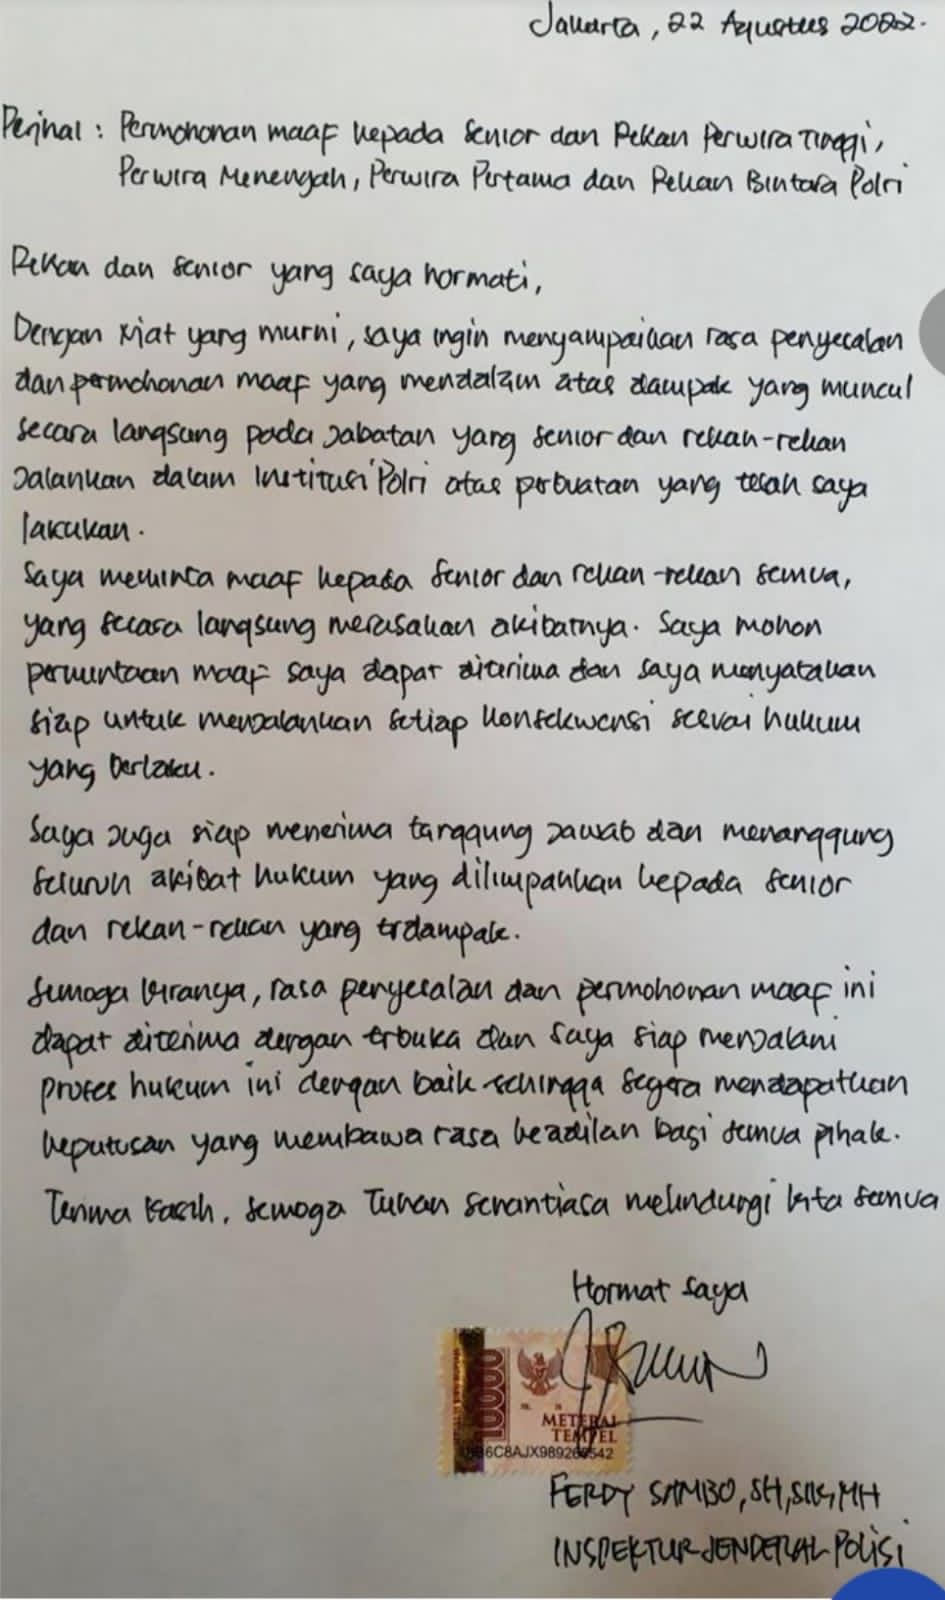 Jakarta, 22 Agustus 2022.
Perihal : Permohonan maaf kepada Senior dan Rekan Perwira Tinggi,
Perwira Menengah, Perwira Pertama dan Rekan Bintara Polri
Rekan dan senior yang saya hormati,
Dengan niat yang murni, saya ingin menyampaikan rasa penyesalan
dan permohonan maaf yang mendalam atas dampak yang muncul
secara langsung pada jabatan yang senior dan rekan-rekan
jalankan dalam Institusi Polri atas perbuatan yang telah saya
lakukan.
Saya meminta maaf kepada senior dan rekan-rekan semua,
yang secara langsung merasakan akibatnya. Saya mohon
permintaan maaf saya dapat diterima dan saya menyatakan
siap untuk menjalankan setiap konsekwensi sesuai hukum
yang berlaku.
Saya juga siap menerima tanggung jawab dan menanggung
seluruh akibat hukum yang dilimpahkan kepada senior
dan rekan-rekan yang trdampak.
Semoga kiranya, rasa penyesalan dan permohonan maaf ini
dapat diterima dengan trbuka dan saya siap menjalani
proses hukum ini dengan baik sehingga segera mendapatkan
keputusan yang membawa rasa keadilan bagi semua pihak.
Terima kasih, semoga Tuhan senantiasa melindungi kita semua
Hormat saya
10000
METERAI
TEMPEL
FERDY SAMBO, SH, SIK, MH
INSPEKTUR JENDERAL POLISI